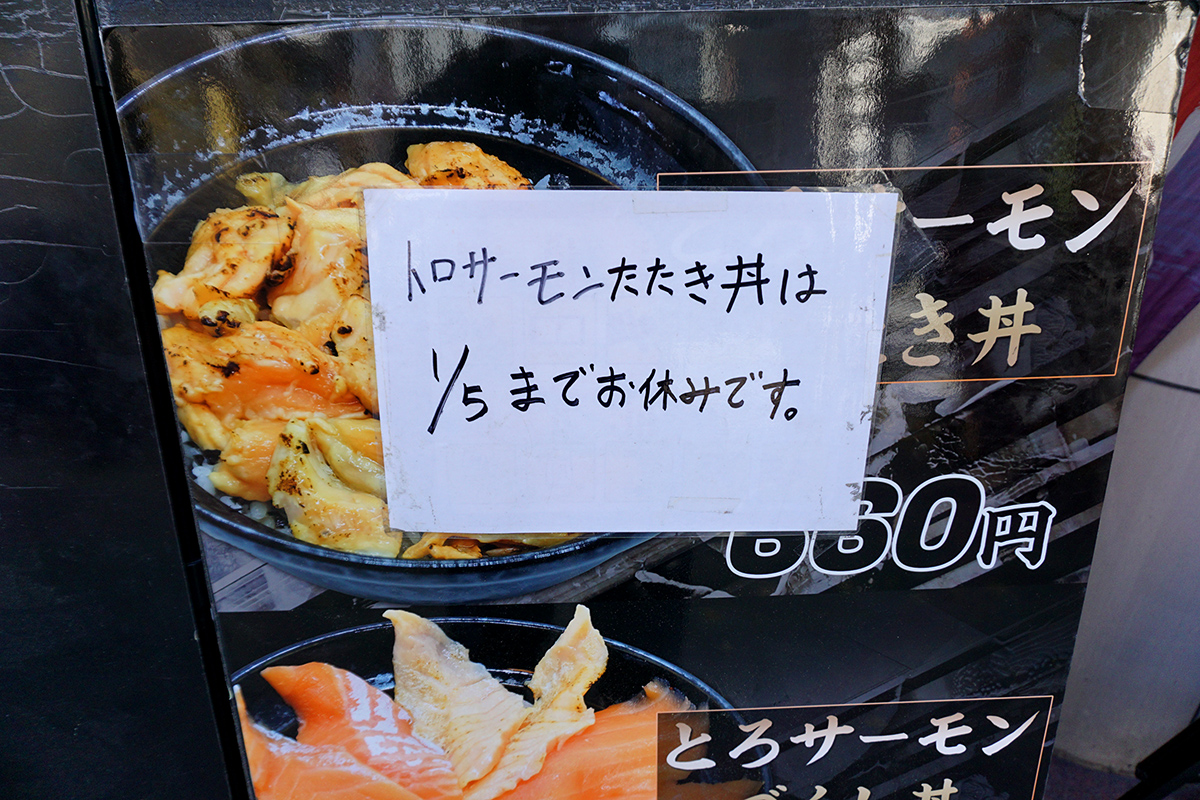 トロサーモンたたき丼は
1/5までお休みです。
ーモン
き丼
660円
とろサーモン